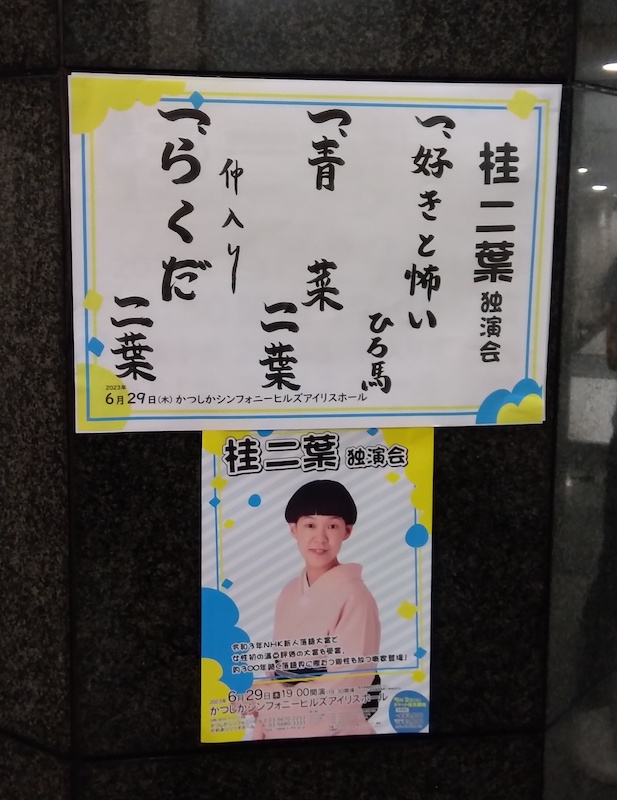 桂二葉独演会
一、好きと怖い
ひろ馬
一、青菜
二葉
仲入り
一、らくだ
二葉
2023年
6月29日(木)かつしかシンフォニーヒルズアイリスホール
桂二葉 独演会
令和3年NHK新人落語大賞で
女性初の満点評価の大賞を受賞。
約300年続く落語界に際立つ個性を放つ噺家登場!
2023年6月29日木19:00開演
かつしかシンフォニーヒルズアイリスホール